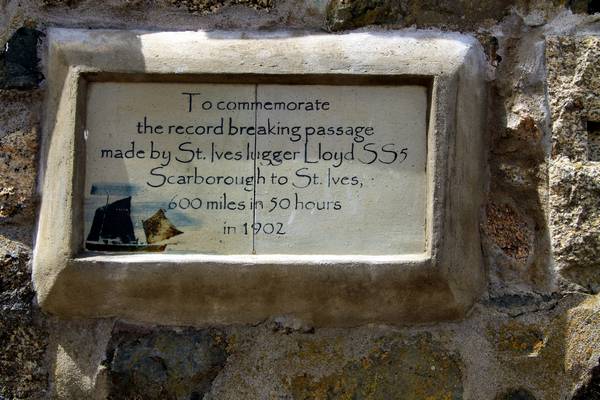 To commemorate
the record breaking passage
made by St. Ives lugger Lloyd SS5
Scarborough to St. Ives,
600 miles in 50 hours
in 1902